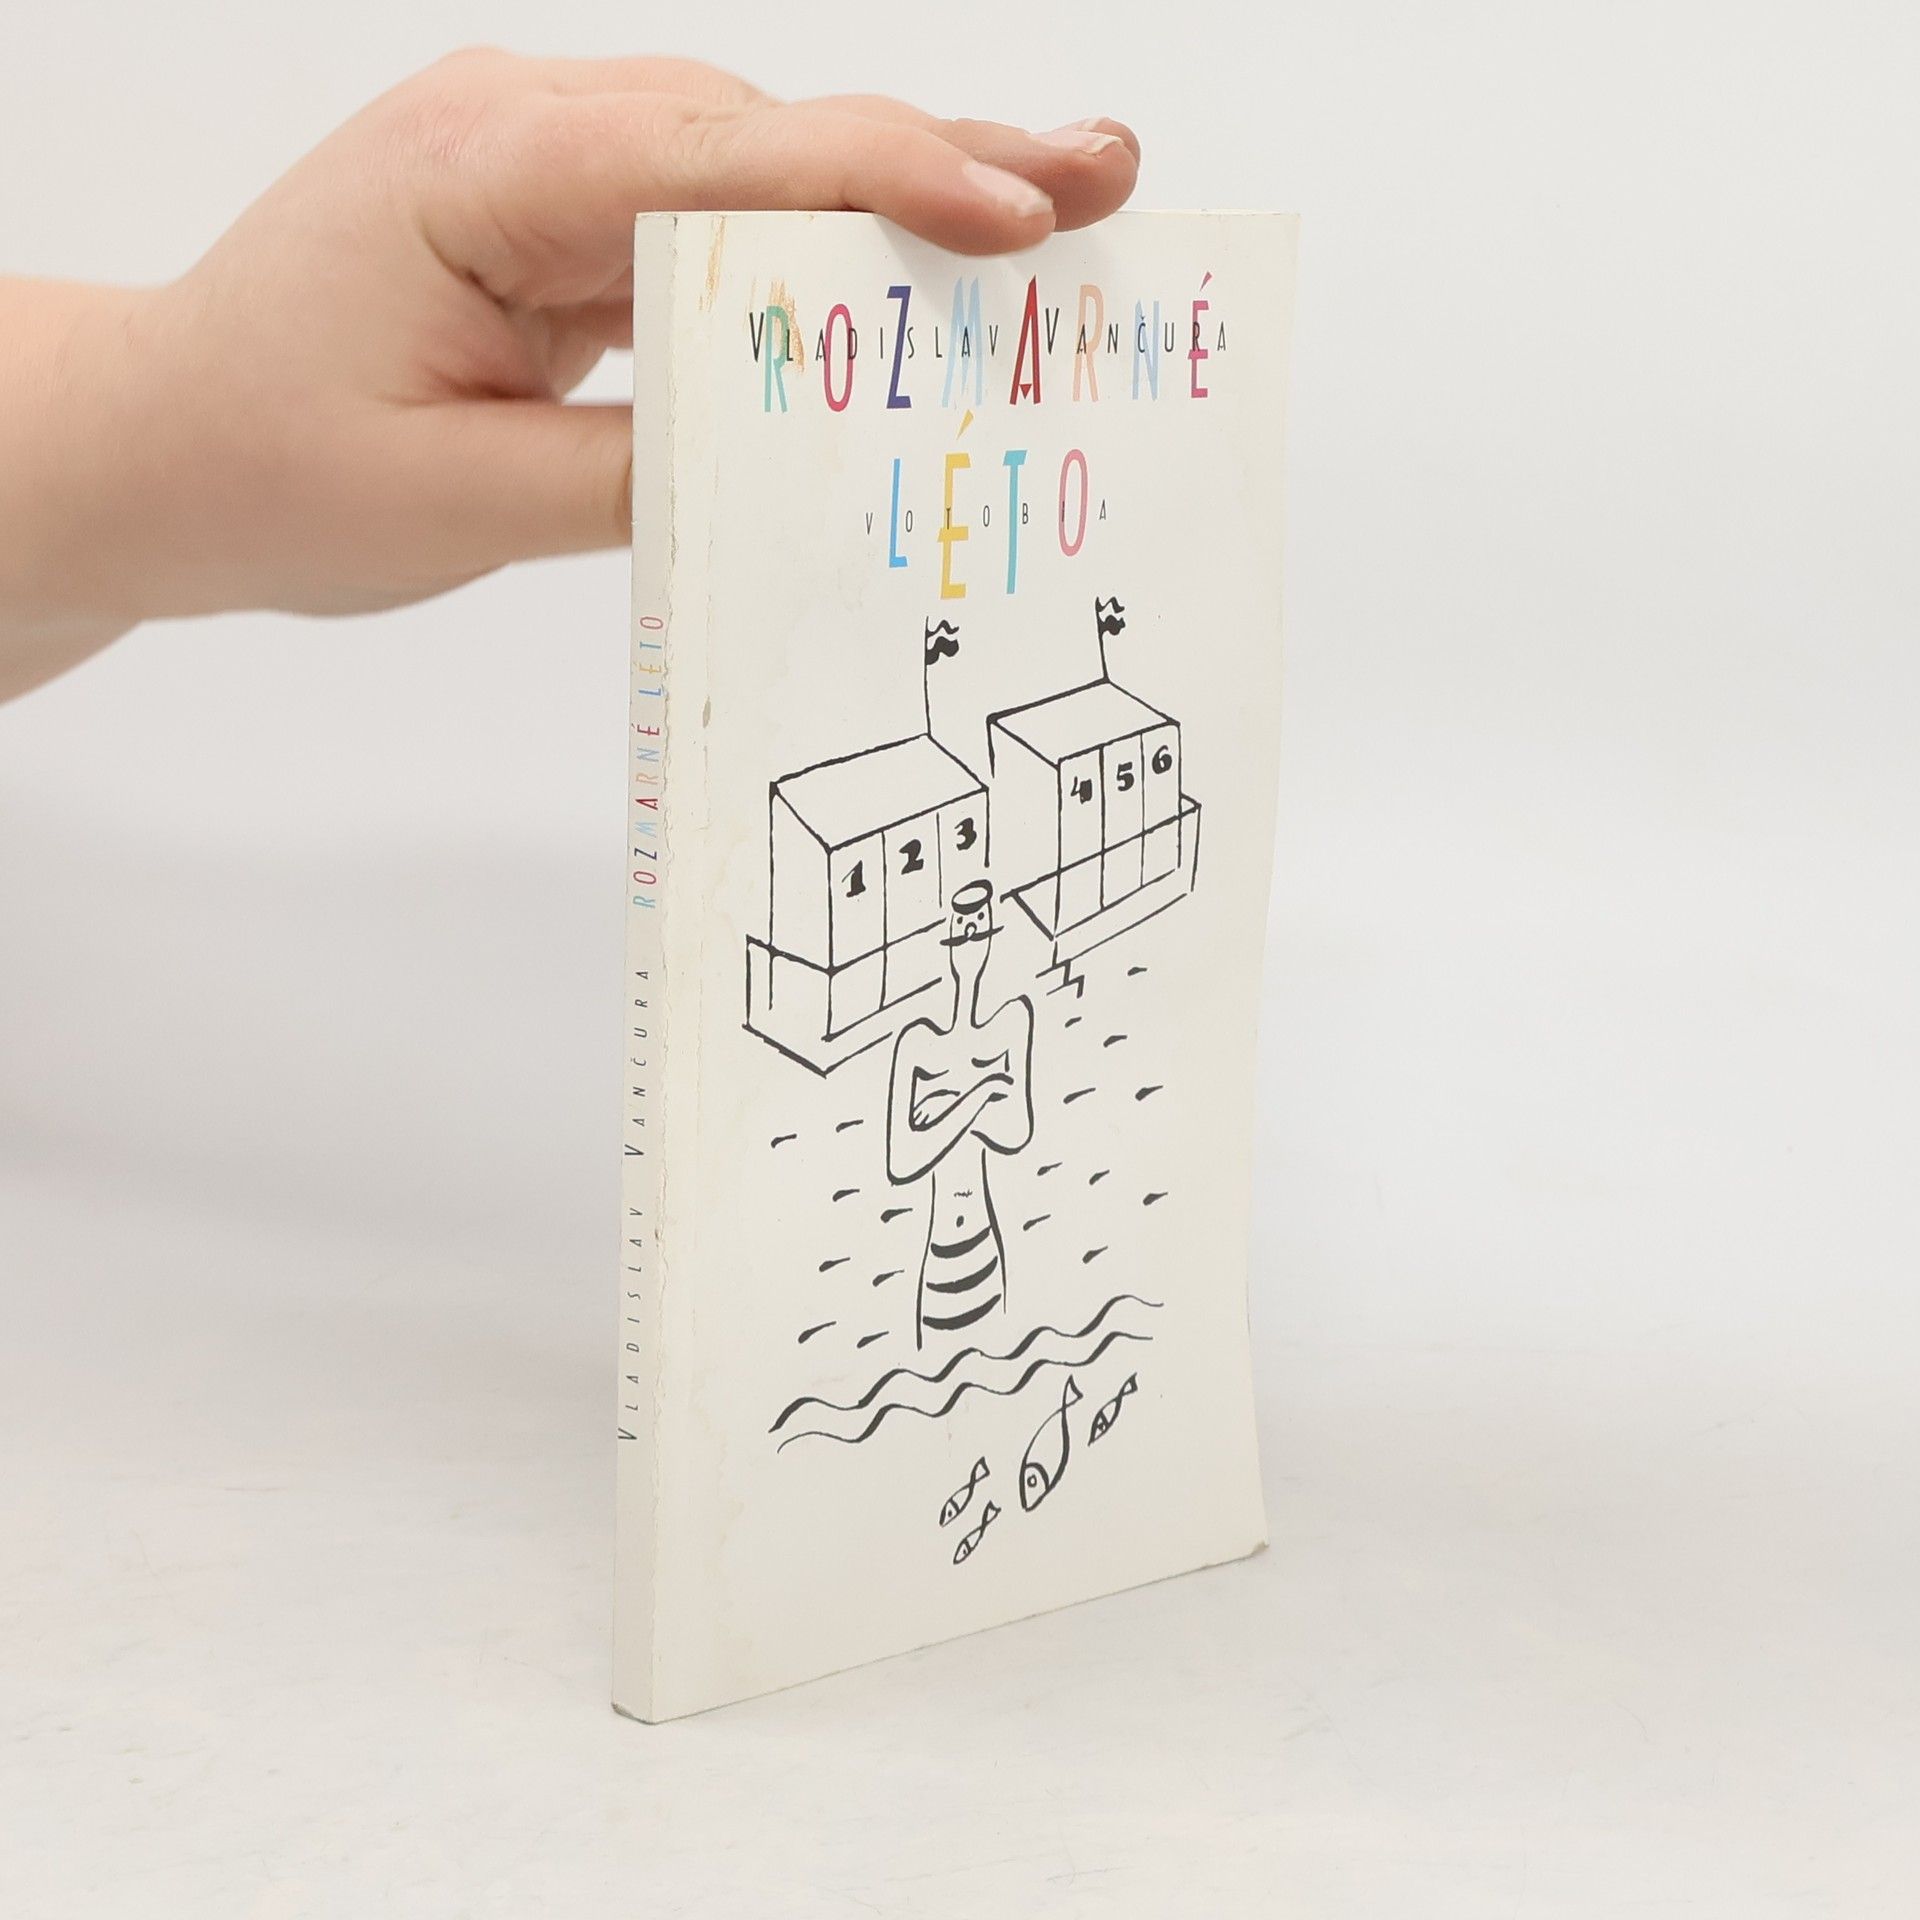 VLADISLAV VANČURA
ROZMARNÉ
LÉTO
VOTOBIA
1 2 3
4 5 6
VLADISLAV VANČURA ROZMARNÉ LÉTO